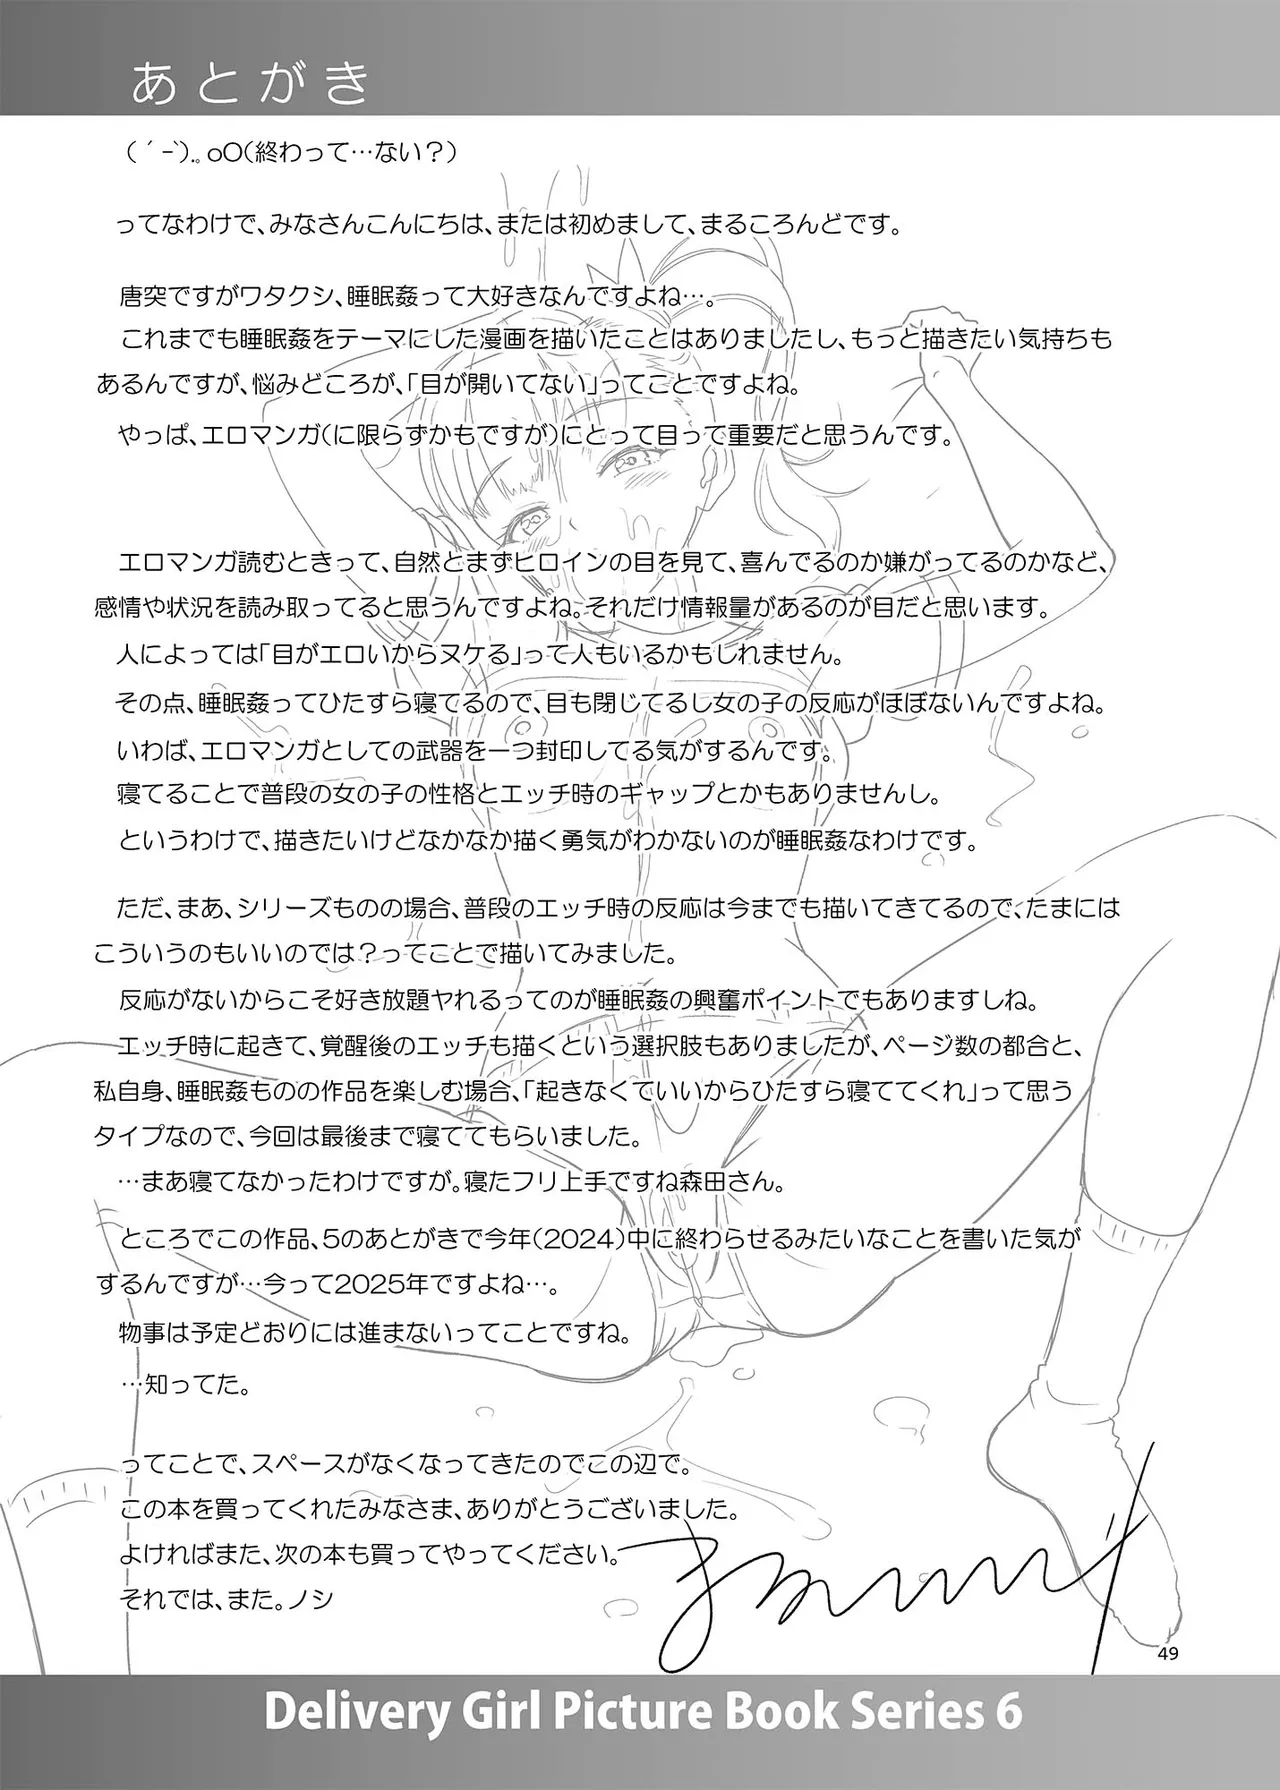 あとがき
( ´ -`).。oO(終わって…ない？)
ってなわけで、みなさんこんにちは、または初めまして、まるころんどです。
唐突ですがワタクシ、睡眠姦って大好きなんですよね…。
これまでも睡眠姦をテーマにした漫画を描いたことはありましたし、もっと描きたい気持ちも
あるんですが、悩みどころが、「目が開いてない」ってことですよね。
やっぱ、エロマンガ(に限らずかもですが)にとって目って重要だと思うんです。
エロマンガ読むときって、自然とまずヒロインの目を見て、喜んでるのか嫌がってるのかなど、
感情や状況を読み取ってると思うんですよね。それだけ情報量があるのが目だと思います。
人によっては「目がエロいからヌケる」って人もいるかもしれません。
その点、睡眠姦ってひたすら寝てるので、目も閉じてるし女の子の反応がほぼないんですよね。
いわば、エロマンガとしての武器を一つ封印してる気がするんです。
寝てることで普段の女の子の性格とエッチ時のギャップとかもありませんし。
というわけで、描きたいけどなかなか描く勇気がわかないのが睡眠姦なわけです。
ただ、まあ、シリーズものの場合、普段のエッチ時の反応は今までも描いてきてるので、たまには
こういうのもいいのでは？ってことで描いてみました。
反応がないからこそ好き放題ヤれるってのが睡眠姦の興奮ポイントでもありますしね。
エッチ時に起きて、覚醒後のエッチも描くという選択肢もありましたが、ページ数の都合と、
私自身、睡眠姦ものの作品を楽しむ場合、「起きなくていいからひたすら寝ててくれ」って思う
タイプなので、今回は最後まで寝ててもらいました。
…まあ寝てなかったわけですが。寝たフリ上手ですね森田さん。
ところでこの作品、5のあとがきで今年(2024)中に終わらせるみたいなことを書いた気が
するんですが…今って2025年ですよね…。
物事は予定どおりには進まないってことですね。
…知ってた。
ってことで、スペースがなくなってきたのでこの辺で。
この本を買ってくれたみなさま、ありがとうございました。
よければまた、次の本も買ってやってください。
それでは、また。ノシ
49
Delivery Girl Picture Book Series 6